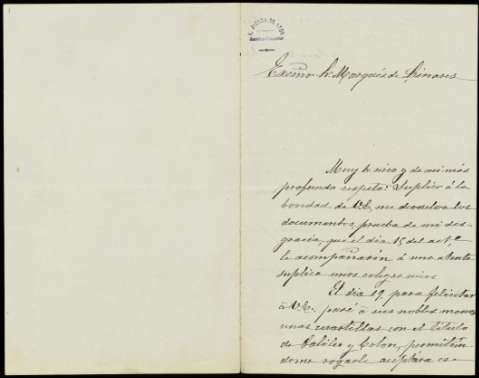 Excmo. Sr. Marqués de Linares
Muy Sr. mio y de mi más
profundo respeto: Suplico á la
bondad de V.E. me devuelva los
documentos prueba de mi des-
gracia, que el dia 15 del act.e
le acompañaron á una atenta
suplica unos colegas mios
El dia 19, para felicitar
á V.E. pasé á sus nobles manos
unas cuartillas con el titulo
de Galileo y Colon, permitien
dome rogarle aceptara es-